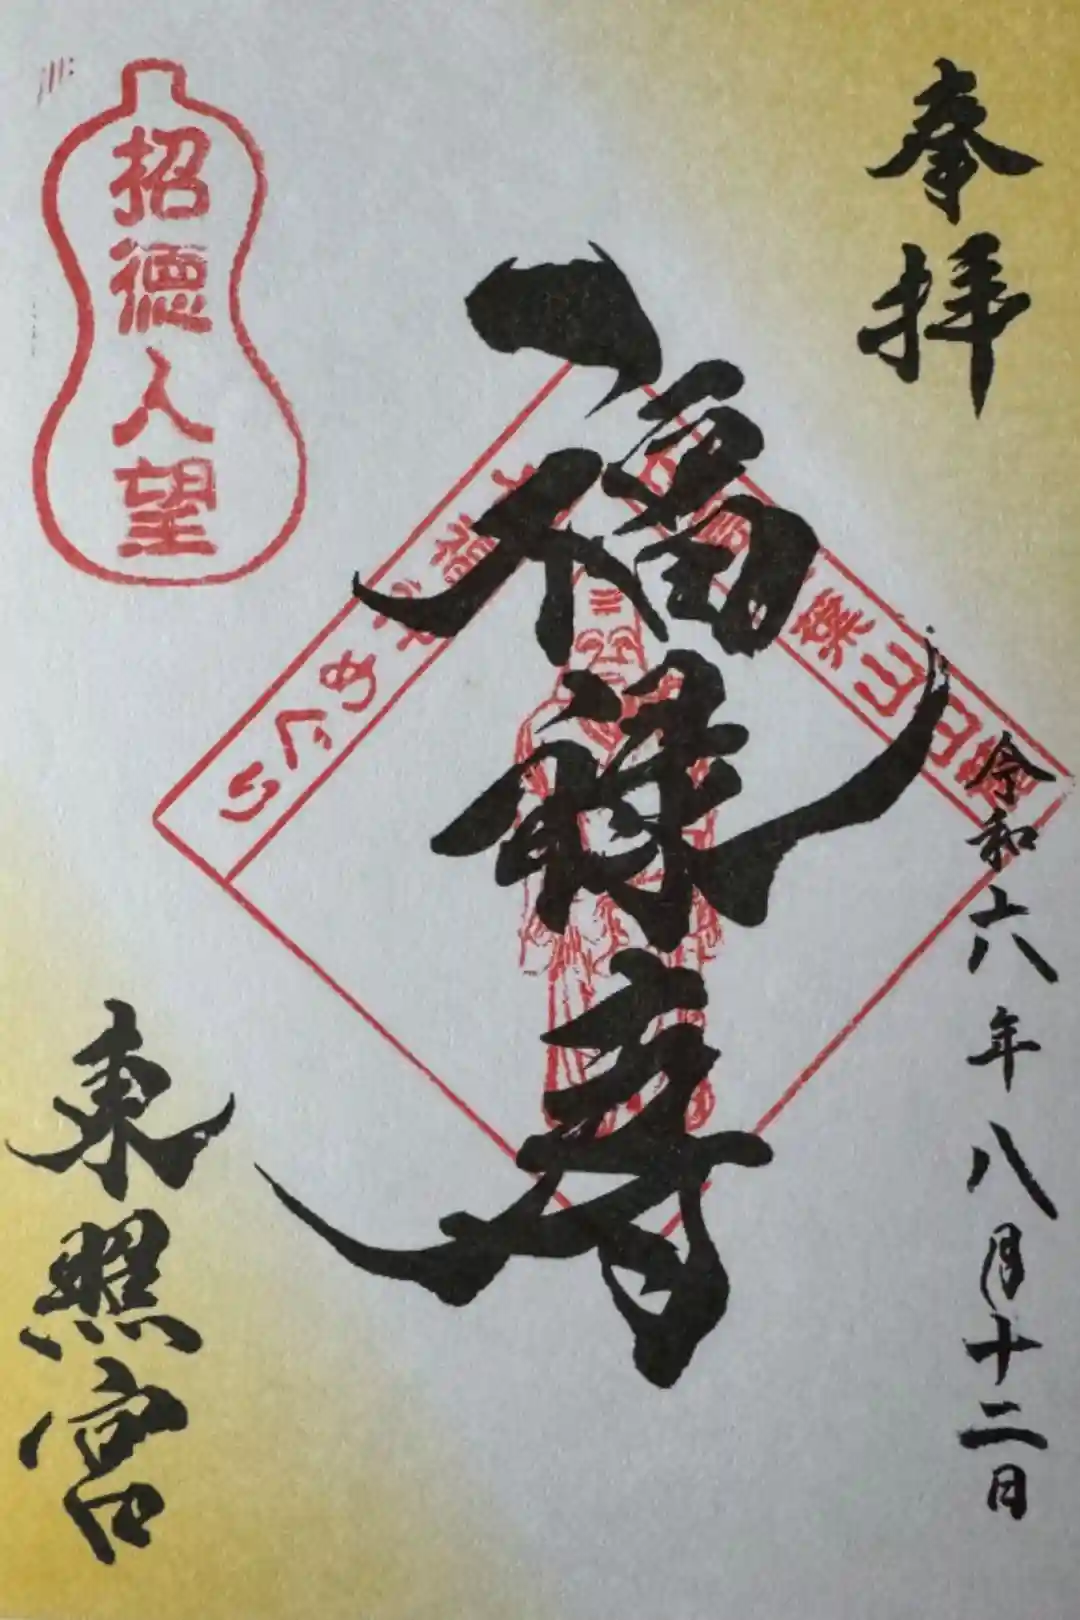 奉拝
令和六年八月十二日
福禄寿
東照宮
招徳人望